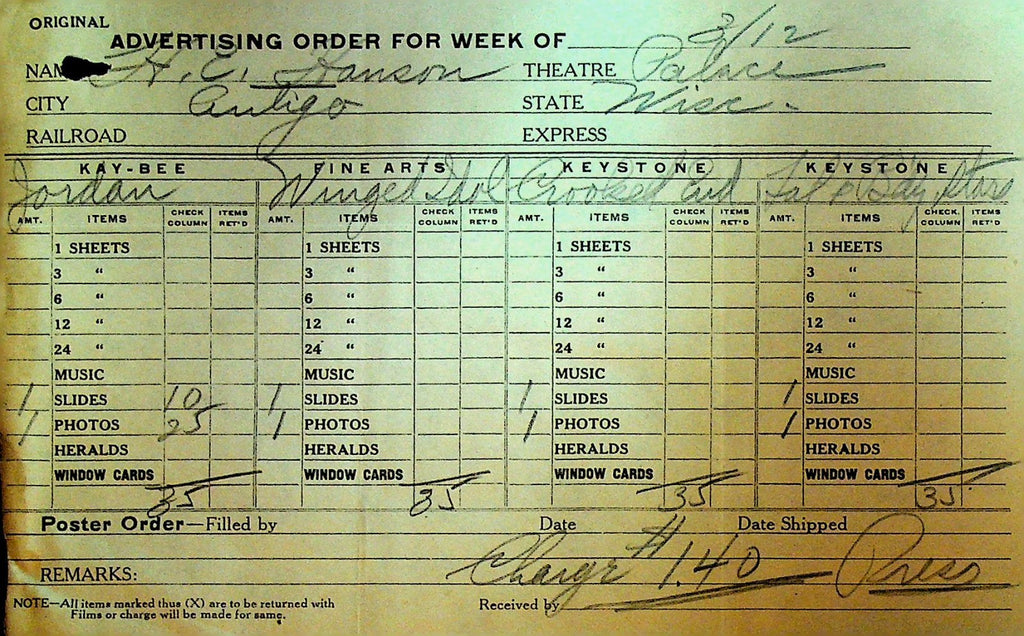 ORIGINAL
ADVERTISING ORDER FOR WEEK OF 3/12
NAME H. E. Hanson THEATRE Palace
CITY Antigo STATE Wisc.
RAILROAD EXPRESS
KAY-BEE FINE ARTS KEYSTONE KEYSTONE
Jordan Winged Idol Crooked Stars
AMT. ITEMS CHECK COLUMN ITEMS RET'D AMT. ITEMS CHECK COLUMN ITEMS RET'D AMT. ITEMS CHECK COLUMN ITEMS RET'D AMT. ITEMS CHECK COLUMN ITEMS RET'D
1 SHEETS 1 SHEETS 1 SHEETS 1 SHEETS
3 “ 3 “ 3 “ 3 “
6 “ 6 “ 6 “ 6 “
12 “ 12 “ 12 “ 12 “
24 “ 24 “ 24 “ 24 “
MUSIC MUSIC MUSIC MUSIC
1 SLIDES 10 1 SLIDES 1 SLIDES 1 SLIDES
1 PHOTOS 25 1 PHOTOS 1 PHOTOS 1 PHOTOS
HERALDS HERALDS HERALDS HERALDS
WINDOW CARDS WINDOW CARDS WINDOW CARDS WINDOW CARDS
35 35 35 35
Poster Order—Filled by Date Date Shipped
Charge # 1.40 Press
REMARKS:
NOTE—All items marked thus (X) are to be returned with Received by
Films or charge will be made for same.